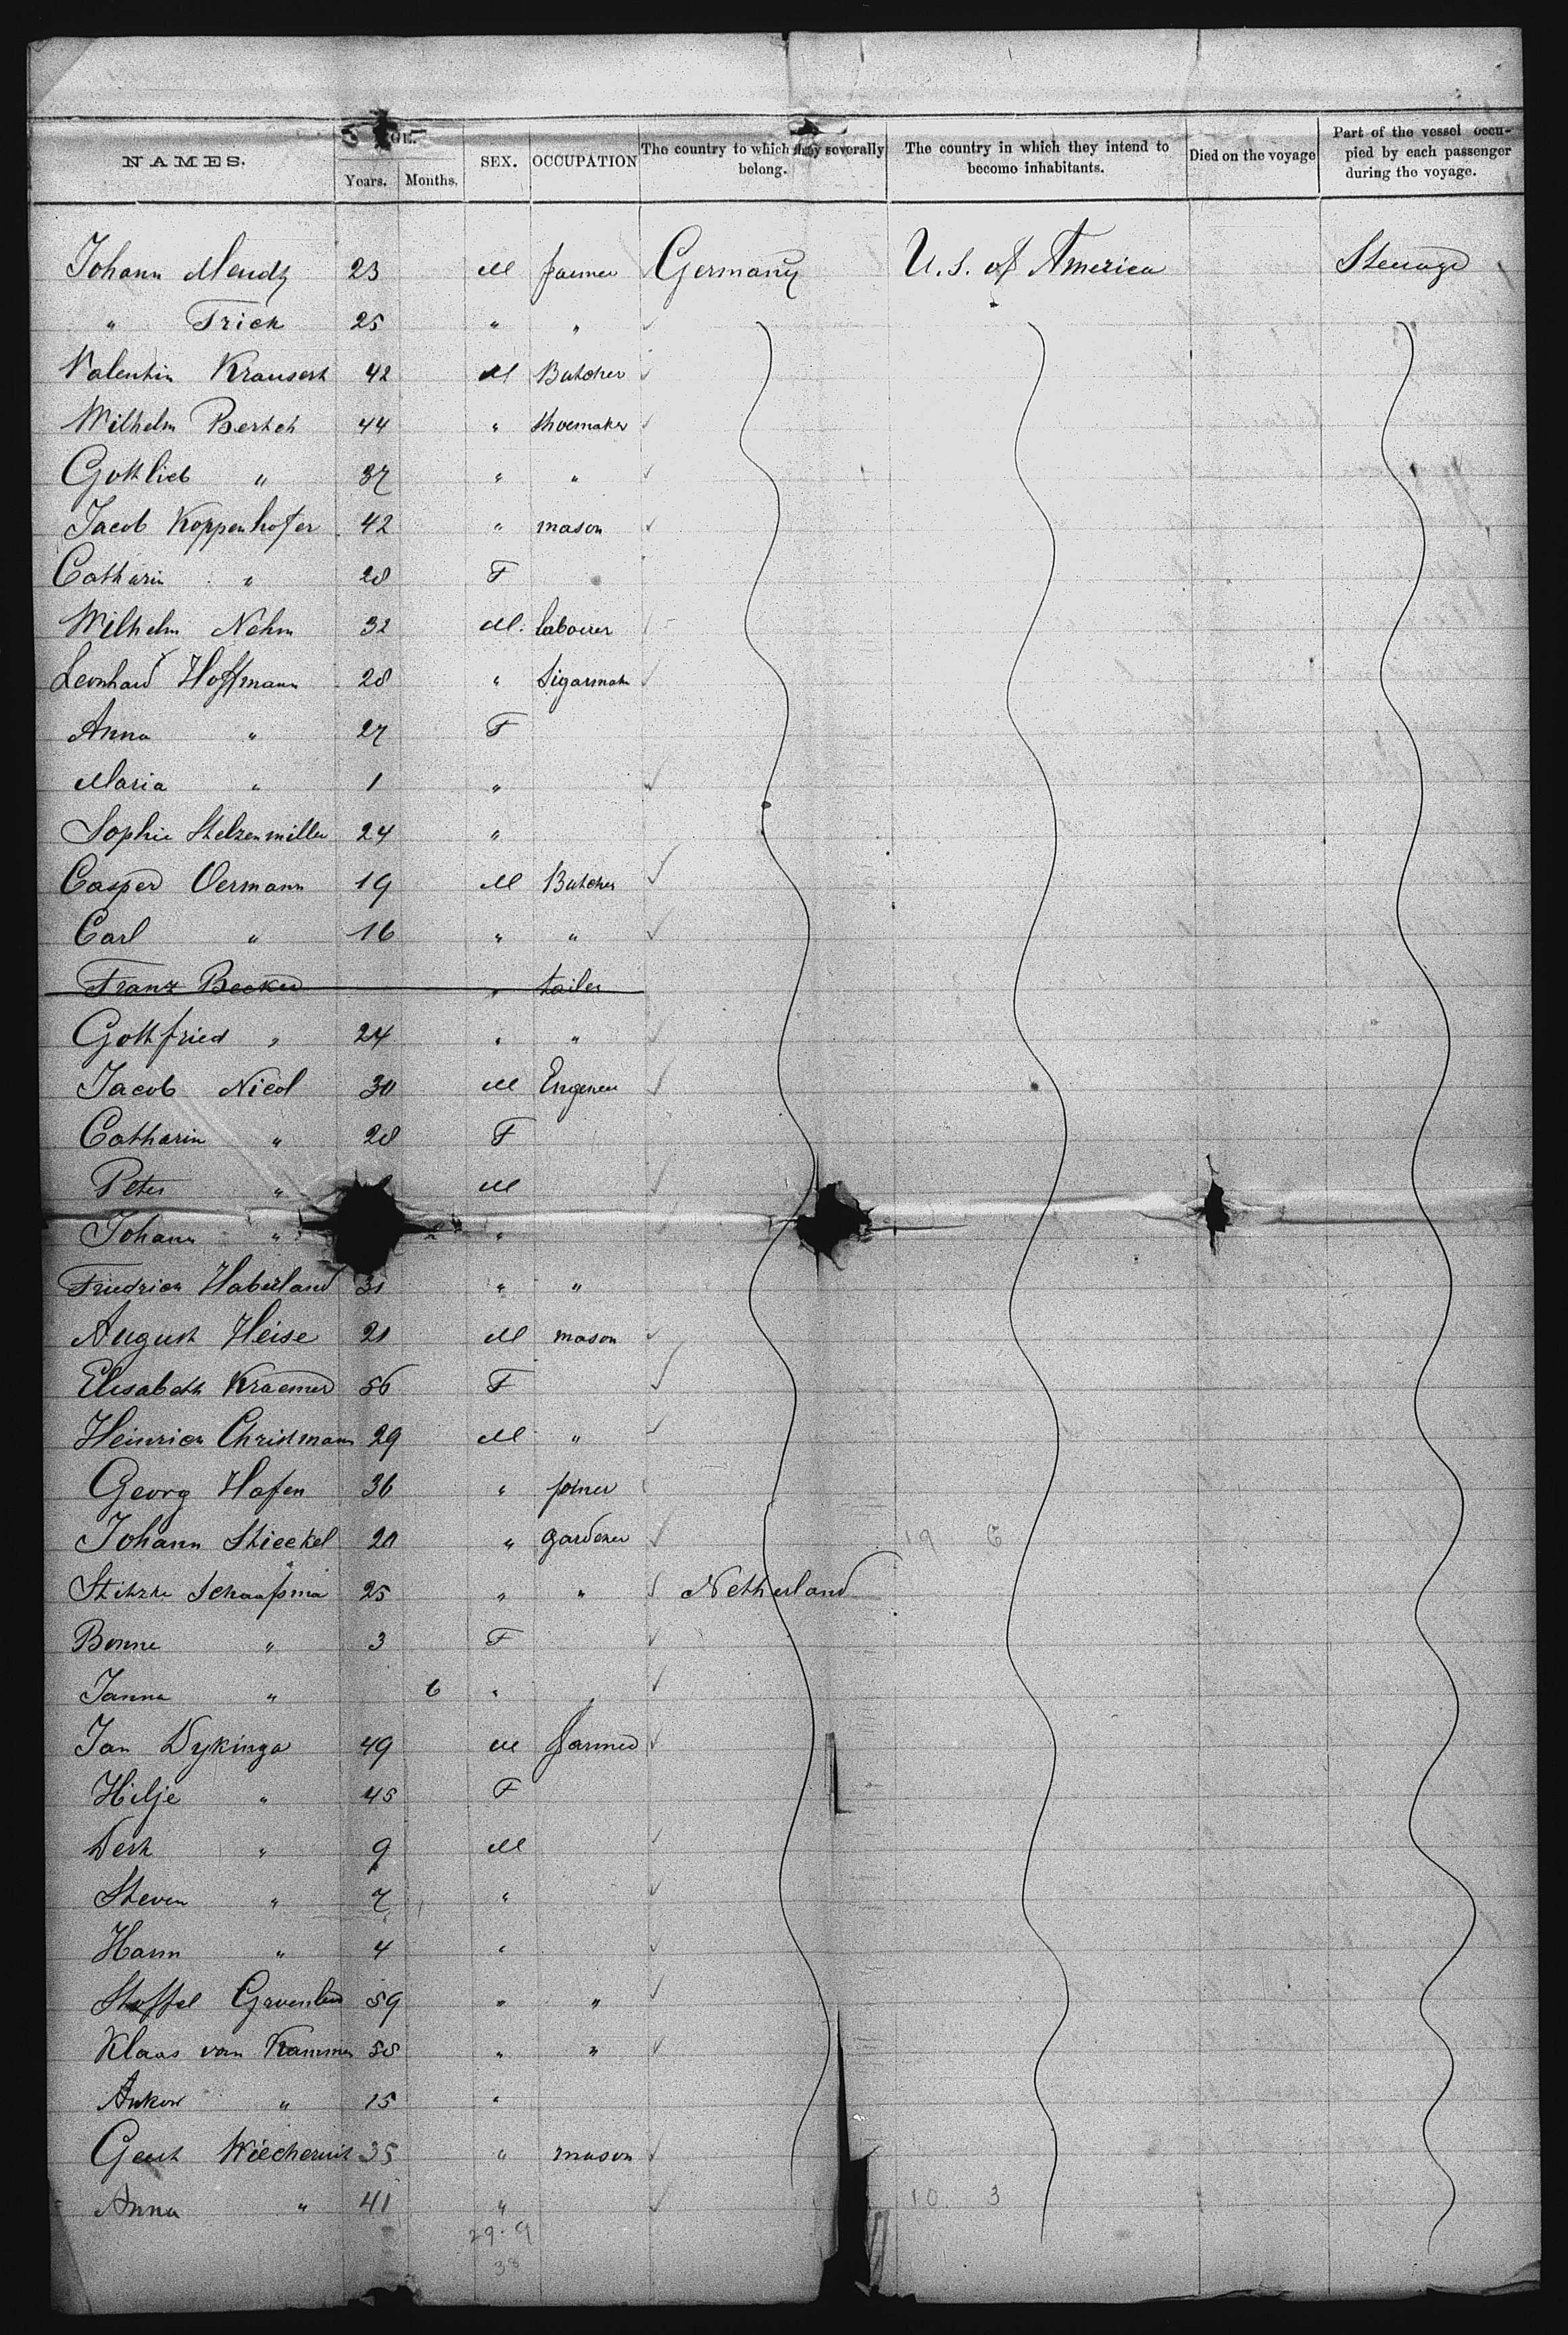 NAMES. AGE. Years. Months. SEX. OCCUPATION The country to which they severally belong. The country in which they intend to become inhabitants. Died on the voyage Part of the vessel occupied by each passenger during the voyage.
Johann Mendz 23 M farmer Germany U. S. of America Steerage
" Frick 25 " "
Valentin Krausert 42 M Butcher
Wilhelm Bertsch 44 " Shoemaker
Gottlieb " 37 " "
Jacob Koppenhofer 42 " mason
Catharin " 28 F
Wilhelm Nehm 32 M. labourer
Leonhard Hoffmann 28 " Sigarmak
Anna " 27 F
Maria " 1 "
Sophie Stelzenmiller 24 "
Casper Oermann 19 M Butcher
Carl " 16 " "
Franz Becker " tailer
Gottfried " 24 " "
Jacob Nicol 30 M Engeneer
Catharin " 28 F
Peter " M
Johann " "
Friedrich Haberland 31 " "
August Heise 21 M mason
Elisabeth Kraemer 56 F
Heinrich Christmann 29 M "
Georg Hafen 36 " joiner
Johann Stieckel 20 " gardener 19 6
Schaafsma 25 " " Netherland
Bonne " 3 F
Janna " 6 "
Jan Dykinga 49 M farmer
Hilje " 45 F
Derk " 9 M
Steven " 7 "
Harm " 4 "
Stoffel 59 " "
Klaas van Kammen 58 " "
" 15 "
Geert 35 " mason
Anna " 41 " 10 3
29. 9
38